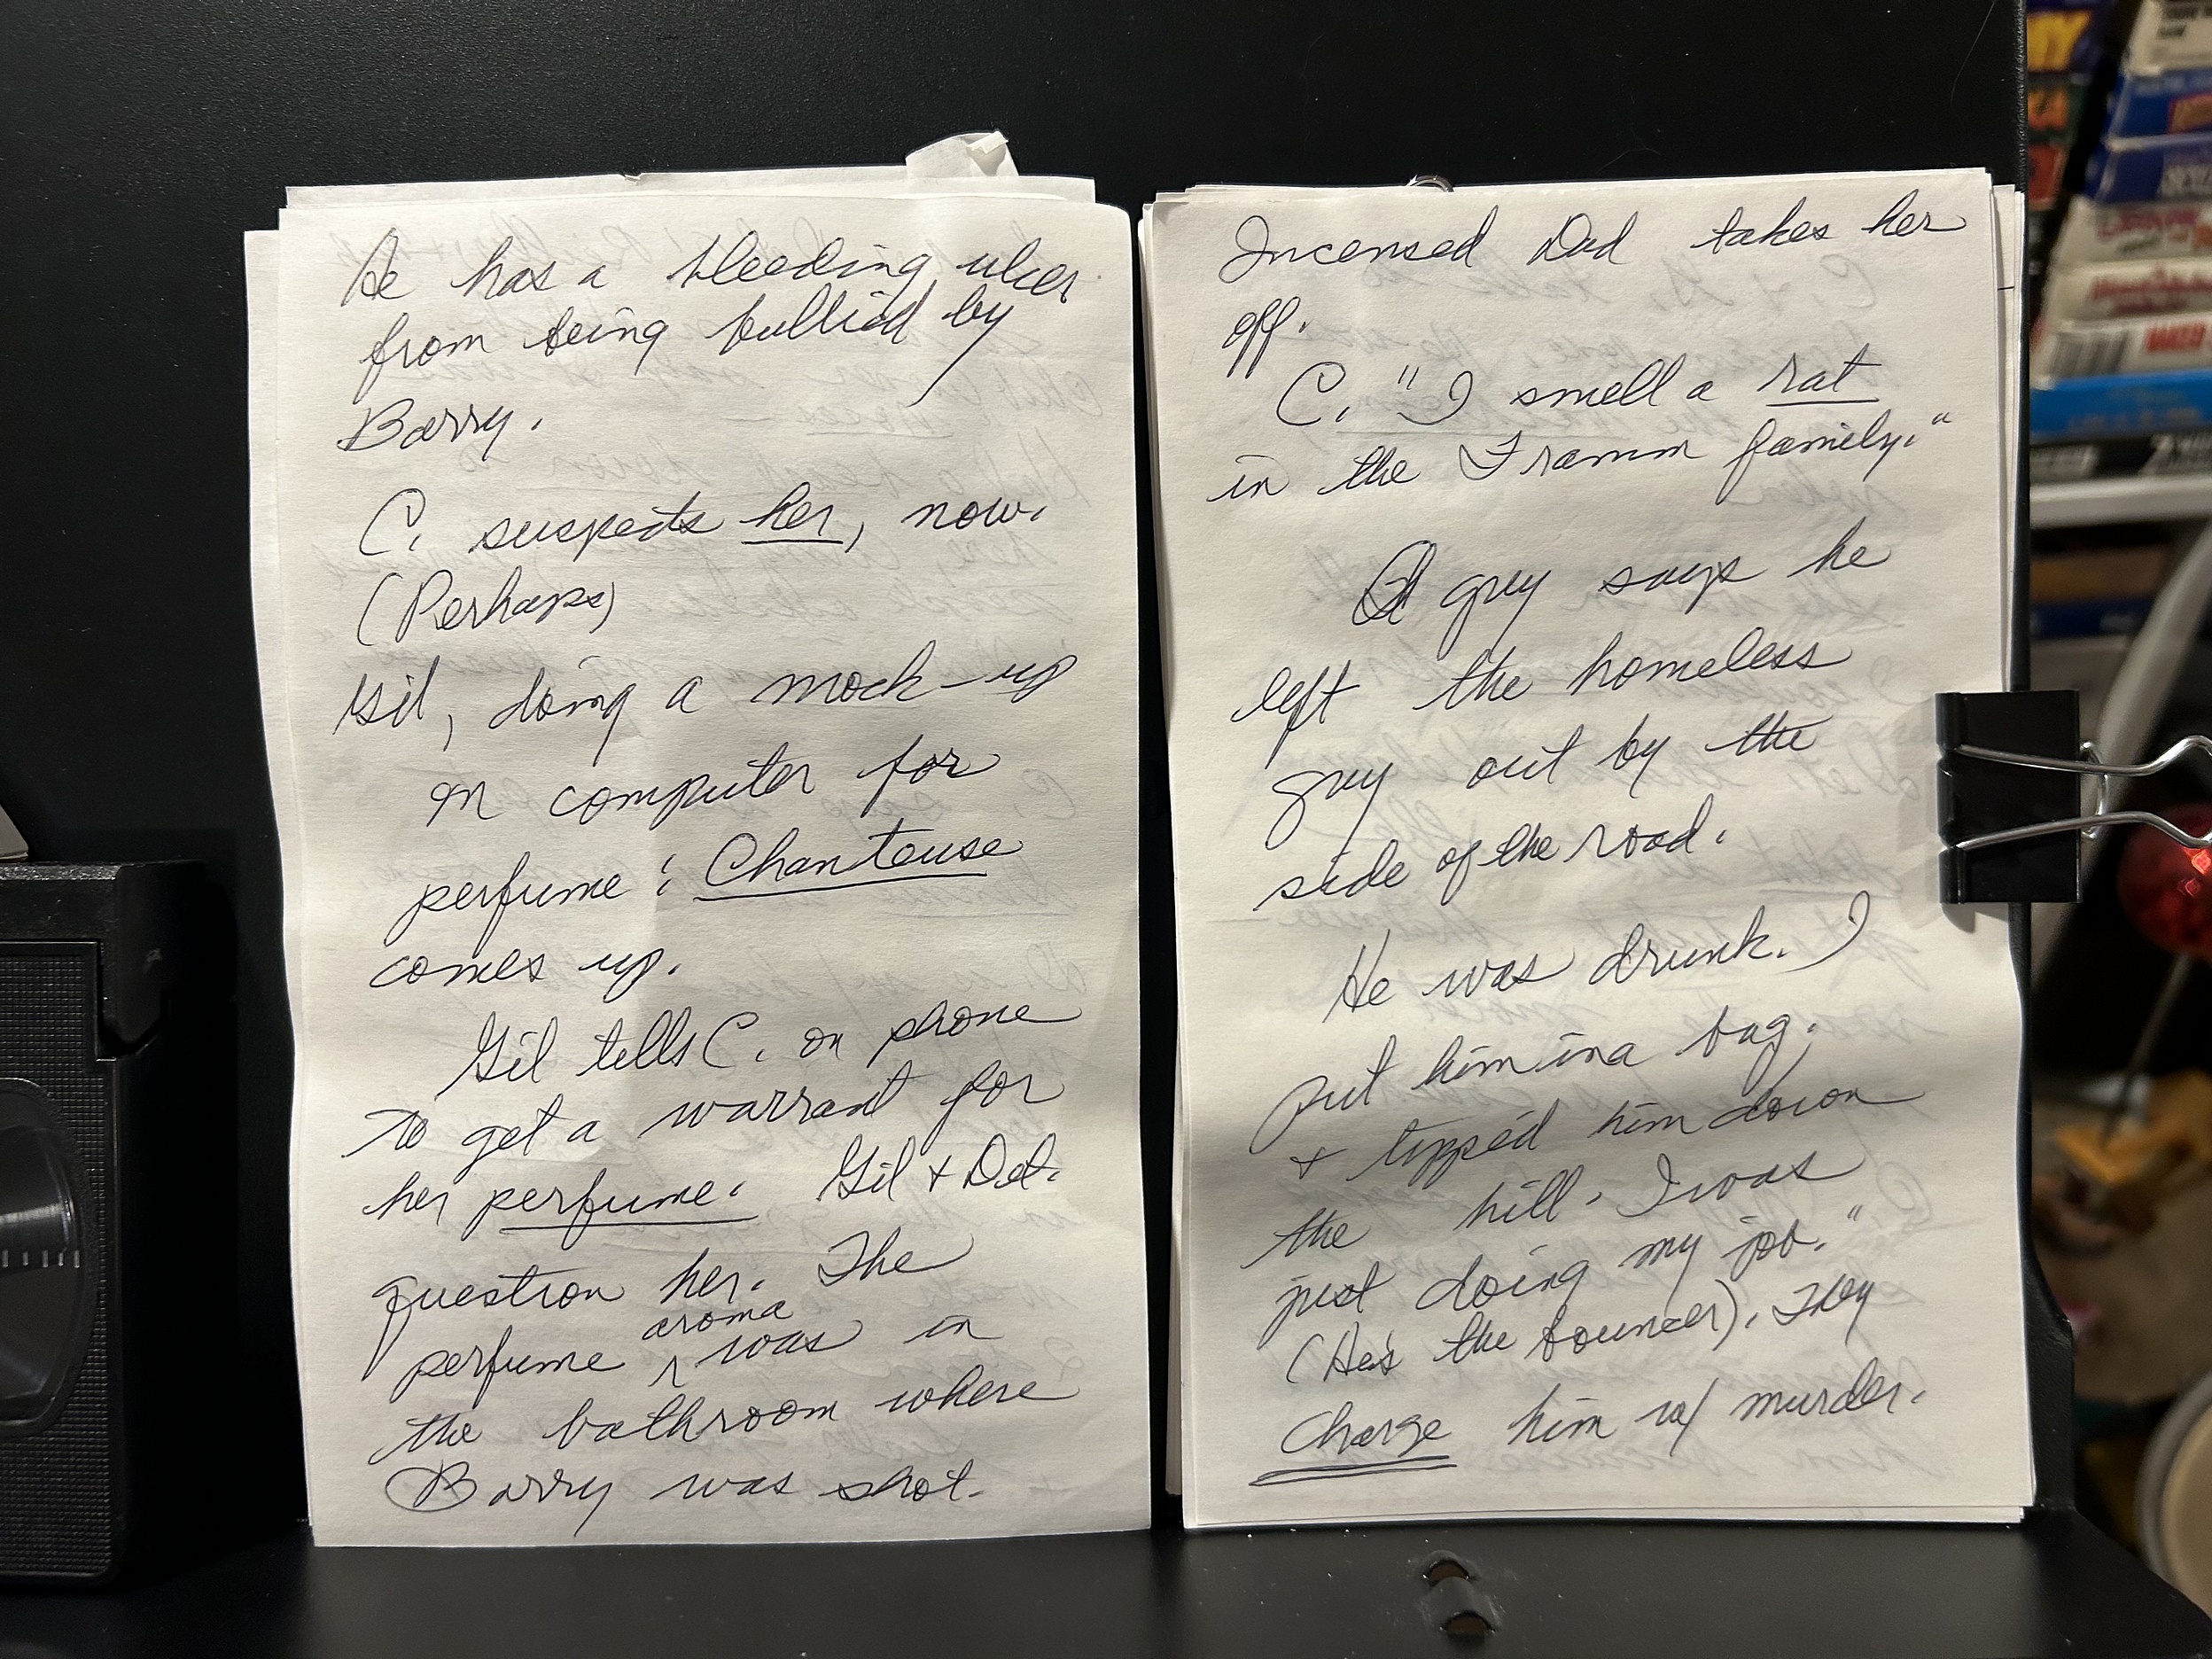 He has a bleeding ulcer
from being bullied by
Barry.
C. suspects her, now.
(Perhaps)
Gil, doing a mock-up
on computer for
perfume: Chanteuse
comes up.
Gil tells C. on phone
to get a warrant for
her perfume. Gil + Det.
question her. The
perfume aroma was in
the bathroom where
Barry was shot.
Incensed Dad takes her
off.
C. "I smell a rat
in the Framm family."
A guy says he
left the homeless
guy out by the
side of the road.
He was drunk. I
put him in a bag.
+ tipped him down
the hill. I was
just doing my job."
(He's the bouncer). They
Charge him w/ murder.